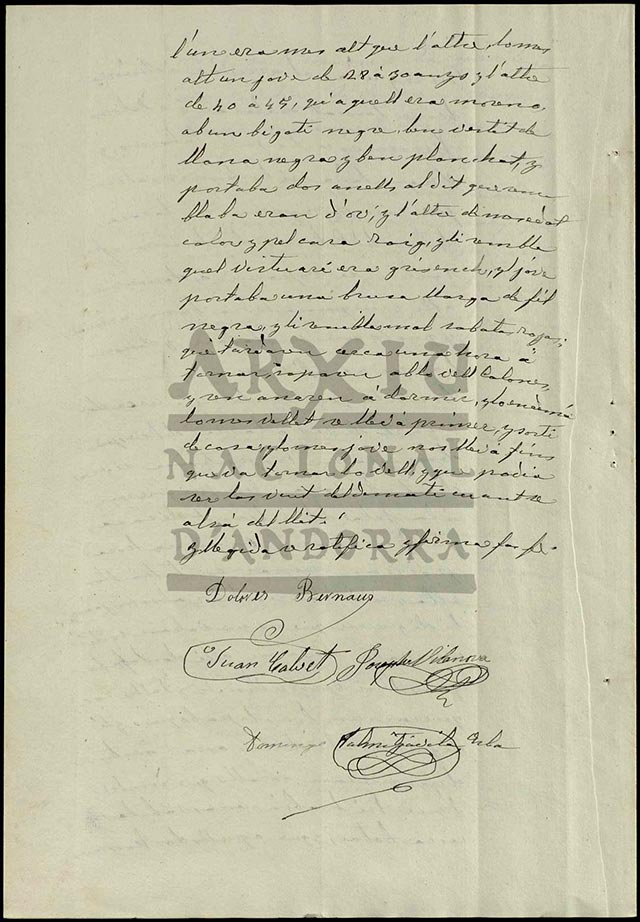 l'un era mes alt que l'altre, lo mes
alt un jove de 28 á 30 anys y l'altre
de 40 á 45, qui aquell era moreno
ab un bigoti negre, ben vestit de
llana negra y ben planchat, y
portaba dos anells al dit que sem
blaba eran d'or; y l'altre
color y pel cara roig, y li sembla
quel vistuari era grisench, y l jove
portaba una brusa llarga de fil
negra, y li sembla mal sabata
que tardaren cerca una hora á
tornar, soparen ab lo vell Calones,
y sen anaren á dormir, y lo endemá
lo mes vellet se llevá primer, y sortí
de casa, y lo mes jove nos llevá fins
que va tornar lo vell, y que podia
ser las vuit del dematí cuant se
alsá del llit.
y llegida se ratifica y firma fas fe.
Dolores Bernaus
Juan Calvet Vilanova
Domingo
ARXIU
NACIONAL
D'ANDORRA